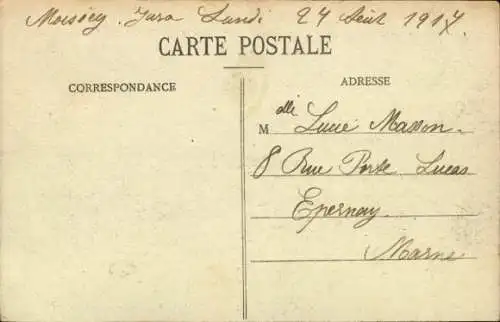 Moissey Jura Lundi 27 Août 1917
CARTE POSTALE
CORRESPONDANCE
ADRESSE
Mlle Lucie Masson
8 Rue Porte Lucas
Epernay
Marne